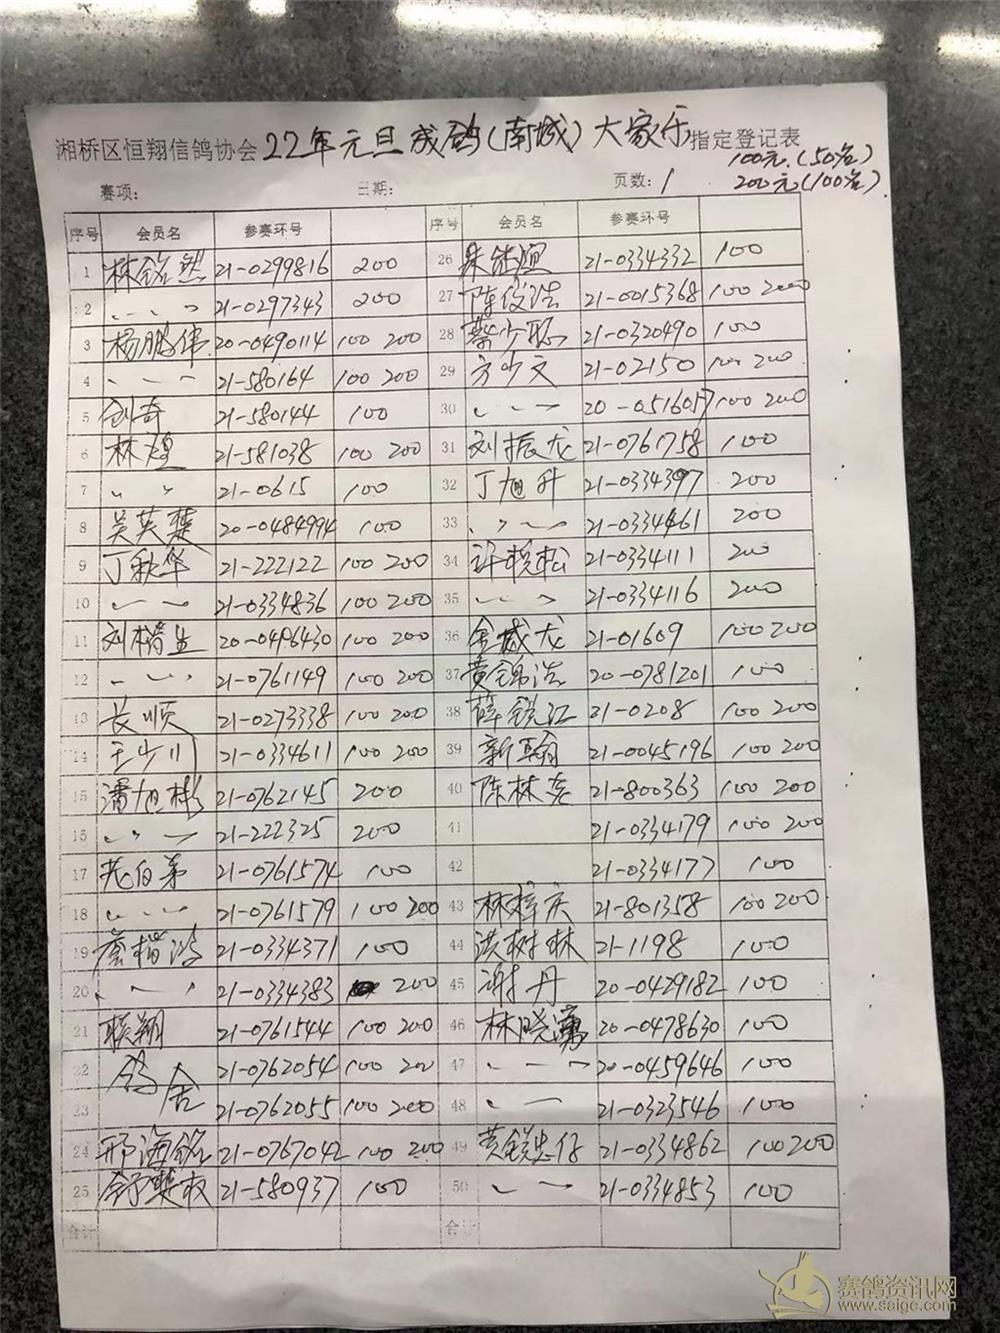 湘桥区恒翔信鸽协会 22年元旦成鸽(南城)大家乐 指定登记表
100元.(50名)
赛项: 日期: 页数: 1 200元(100名)
序号 会员名 参赛环号 序号 会员名 参赛环号
1 林铭然 21-0299816 200 26 21-0334332 100
2 〃 21-0297343 200 27 陈俊浩 21-0015368 100 200
3 杨鹏伟 20-0490114 100 200 28 蔡少聪 21-0320490 100
4 〃 21-580164 100 200 29 方少文 21-02150 100 200
5 创奇 21-580144 100 30 〃 20-0516017 100 200
6 林煌 21-581038 100 200 31 刘振龙 21-0761758 100
7 〃 21-0615 100 32 丁旭升 21-0334397 200
8 吴英楚 20-0484994 100 33 〃 21-0334461 200
9 丁秋华 21-222122 100 200 34 许松 21-0334111 200
10 〃 21-0334836 100 200 35 〃 21-0334116 200
11 刘楷生 20-0496430 100 200 36 金城龙 21-01609 100 200
12 〃 21-0761149 100 200 37 黄锦浩 20-0781201 100
13 长顺 21-0273338 100 200 38 薛锐江 21-0208 100 200
14 王少川 21-0334611 100 200 39 新翰 21-0045196 100 200
15 潘旭彬 21-0762145 200 40 陈林亮 21-800363 100 200
16 〃 21-222325 200 41 21-0334179 100 200
17 伯弟 21-0761574 100 42 21-0334177 100
18 〃 21-0761579 100 200 43 林梓庆 21-801358 100 200
19 詹楷鸿 21-0334371 100 44 洪树林 21-1198 100
20 〃 21-0334383 200 45 谢丹 20-0429182 100
21 联翔 21-0761544 100 200 46 林晓 20-0478630 100
22 鸽 21-0762054 100 200 47 〃 20-0459646 100
23 舍 21-0762055 100 200 48 〃 21-0323546 100
24 邢海铭 21-0767042 100 200 49 黄锐忠仔 21-0334862 100 200
25 舒楚权 21-580937 100 50 〃 21-0334853 100
合计 合计
赛鸽资讯网
www.saige.com